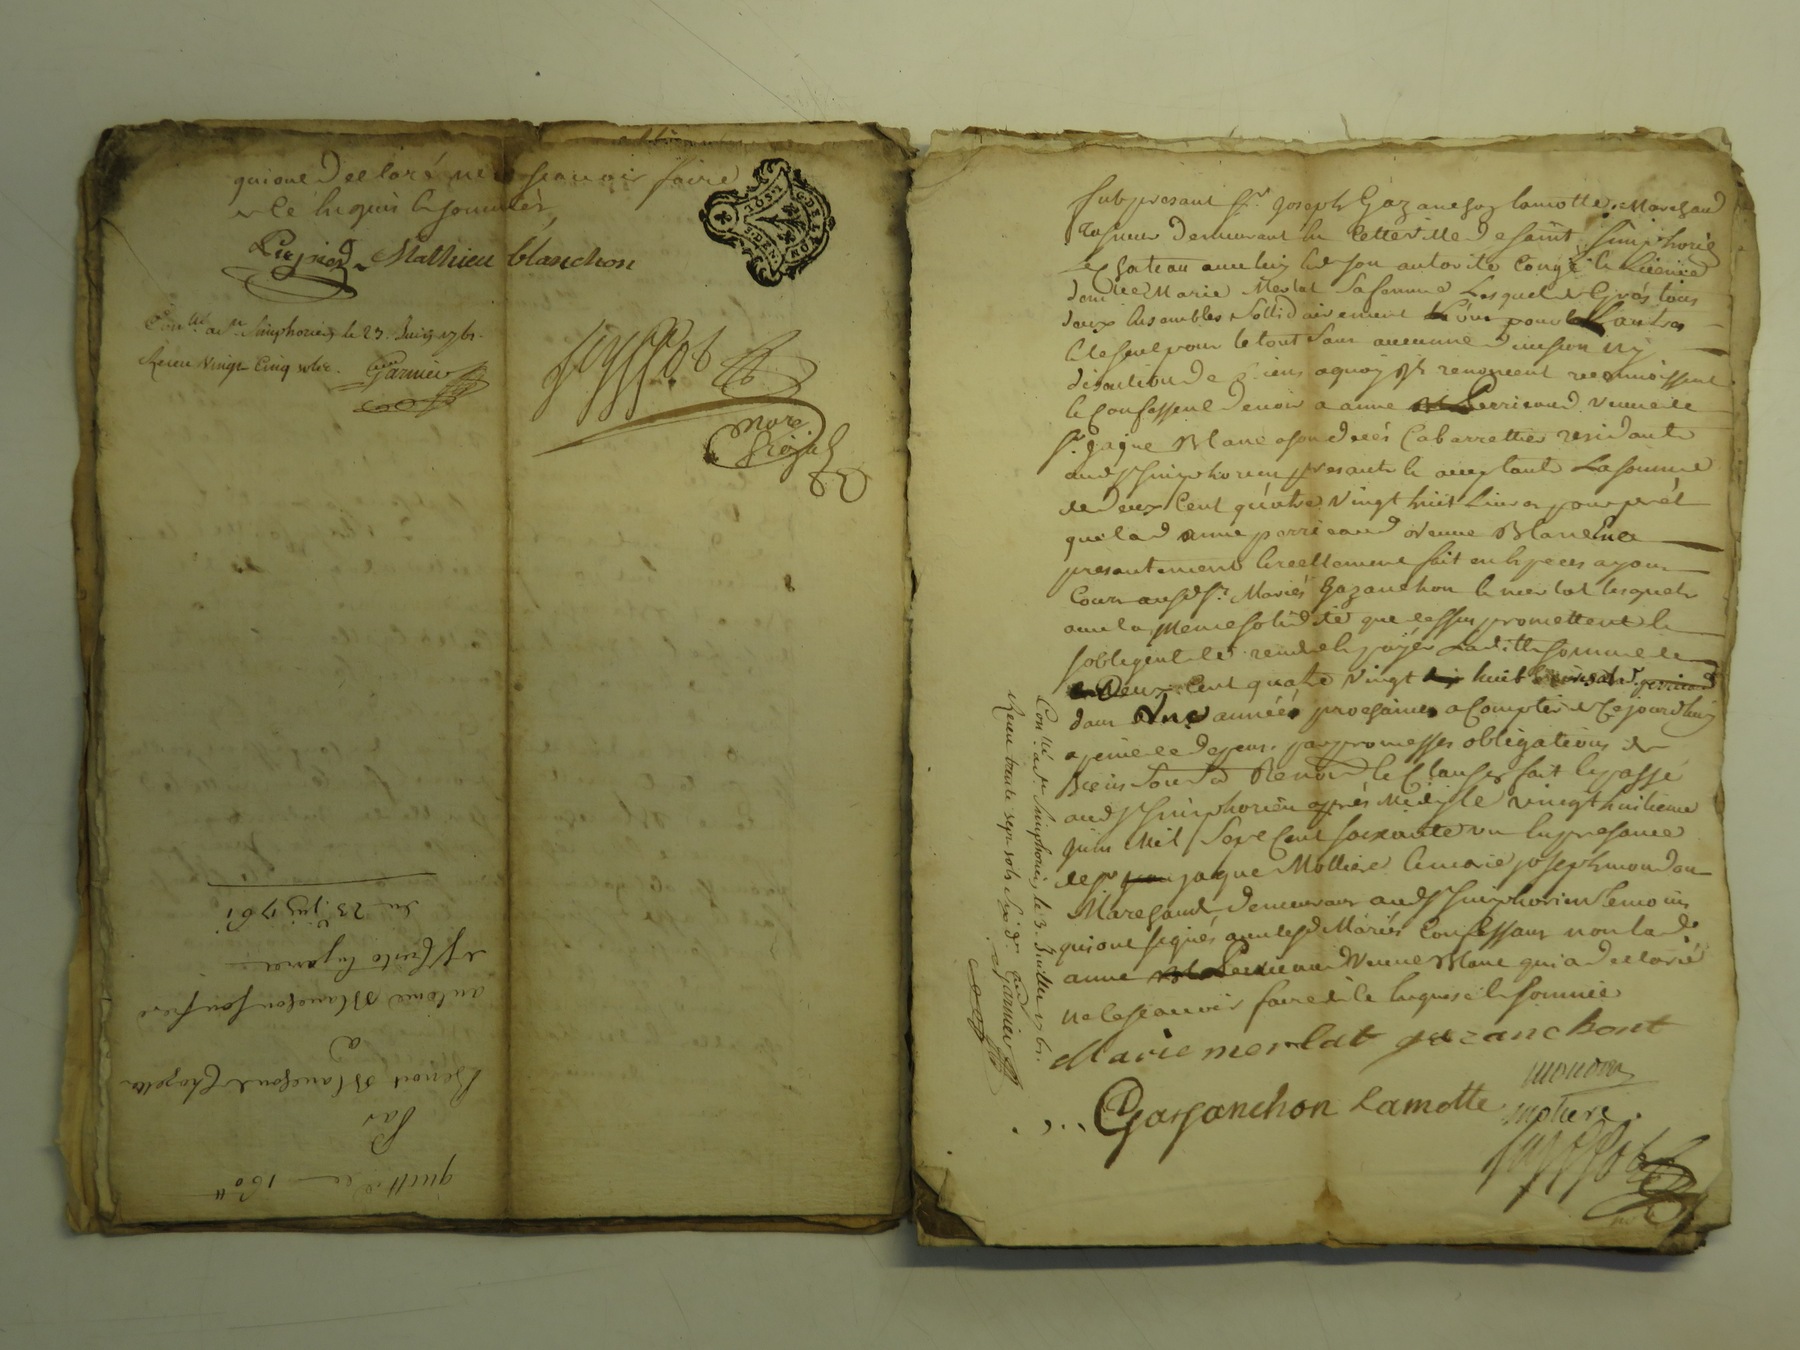 qui ont declaré ne sçauoir faire
de ce enquis et sommés
Mathieu blanchon
Con.llé a s.t Simphorien le 23 Juin 1761.
Receu Vingt Cinq sols. Garnier
not re
Royal
quitt ce 160 ll
Par
Benoit Blanchond
a
antoine Blanchon son frere
du 23.e juin 1761
fut presant s.r joseph Gazanchon lamotte Marchand
demeurant en cette ville de saint Simphorien
le chateau auec luy et de son autorité Congé et Licence
dem.lle Marie Merlat sa femme Lesquels de Grés tous
deux ensembles sollidairement L'un pour L'autre
et le seul pour le tout sans aucunne diuision ny
discution de biens a quoy ils renoncent reconnoissent
et confessent deuoir a anne Perricaud veuue de
s.r jaque Blanc a son deceds Cabarettier residante
aud s.t simphorien presante et aceptante La somme
de deux Cent quatre Vingt huit Liures pour prét
que lad anne perricaud veuue Blanc
presantement et reellement fait en especes ayant
Cours ausd s.rs Mariés Gazanchon et merlat lesquels
auec la meme solidité que dessus promettent et
s'obligent de rendre et payer Laditte somme de
Deux Cent quatre Vingt huit
dans Une année prochaine a Compter de Ce jourdhuy
a peine de depens. par promesses obligations de
Biens Soub.d Renon.d et Clauses fait et passé
aud s.t simphorien aprés Midy le vingt huitieme
juin Mil Sept Cent soixante un En presance
de s.r jaque Mottiere et joseph mondon
Marchands demeurans aud s.t simphorien temoins
qui ont signés auec lesd Mariés Confessans non lad
anne Perricaud Veuue Blanc qui a declaré
ne le sçauoir faire de ce enquise et sommée
Marie merlat gazanchont
mondon
Gazanchon Lamotte
motiere
Con.llé a s.t Simphorien le 3. Juillet 1761.
Receu trente sept sols Six d.rs Garnier